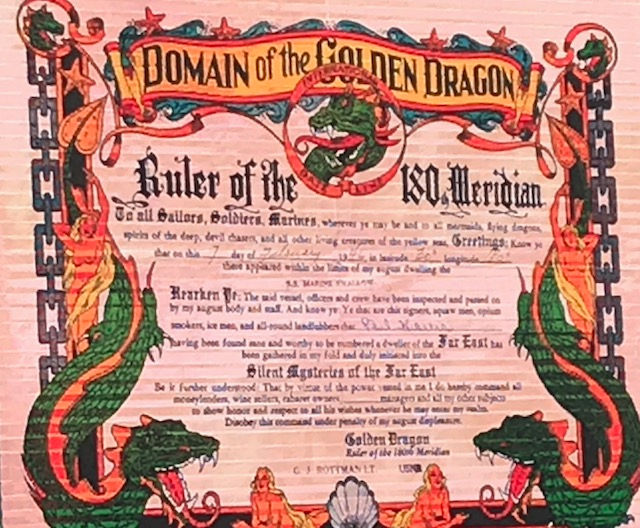 DOMAIN of the GOLDEN DRAGON
Ruler of the 180th Meridian
To all Sailors, Soldiers, Marines, wherever ye may be and to all mermaids, flying dragons,
spirits of the deep, devil chasers, and all other living creatures of the yellow seas, Greetings: Know ye
that on this 7 day of February 19 in latitude 20° longitude
there appeared within the limits of my august dwelling the
S.S. MARINE SWALLOW
Hearken Ye: The said vessel, officers and crew have been inspected and passed on
by my august body and staff. And know ye: Ye that are chit signers, squaw men, opium
smokers, ice men, and all-round landlubbers that Paul
having been found sane and worthy to be numbered a dweller of the Far East has
been gathered in my fold and duly initiated into the
Silent Mysteries of the Far East
Be it further understood: That by virtue of the power vested in me I do hereby command all
moneylenders, wine sellers, cabaret owners managers and all my other subjects
to show honor and respect to all his wishes whenever he may enter my realm.
Disobey this command under penalty of my august displeasure.
Golden Dragon
Ruler of the 180th Meridian
C. J. ROTTMAN LT. USNR